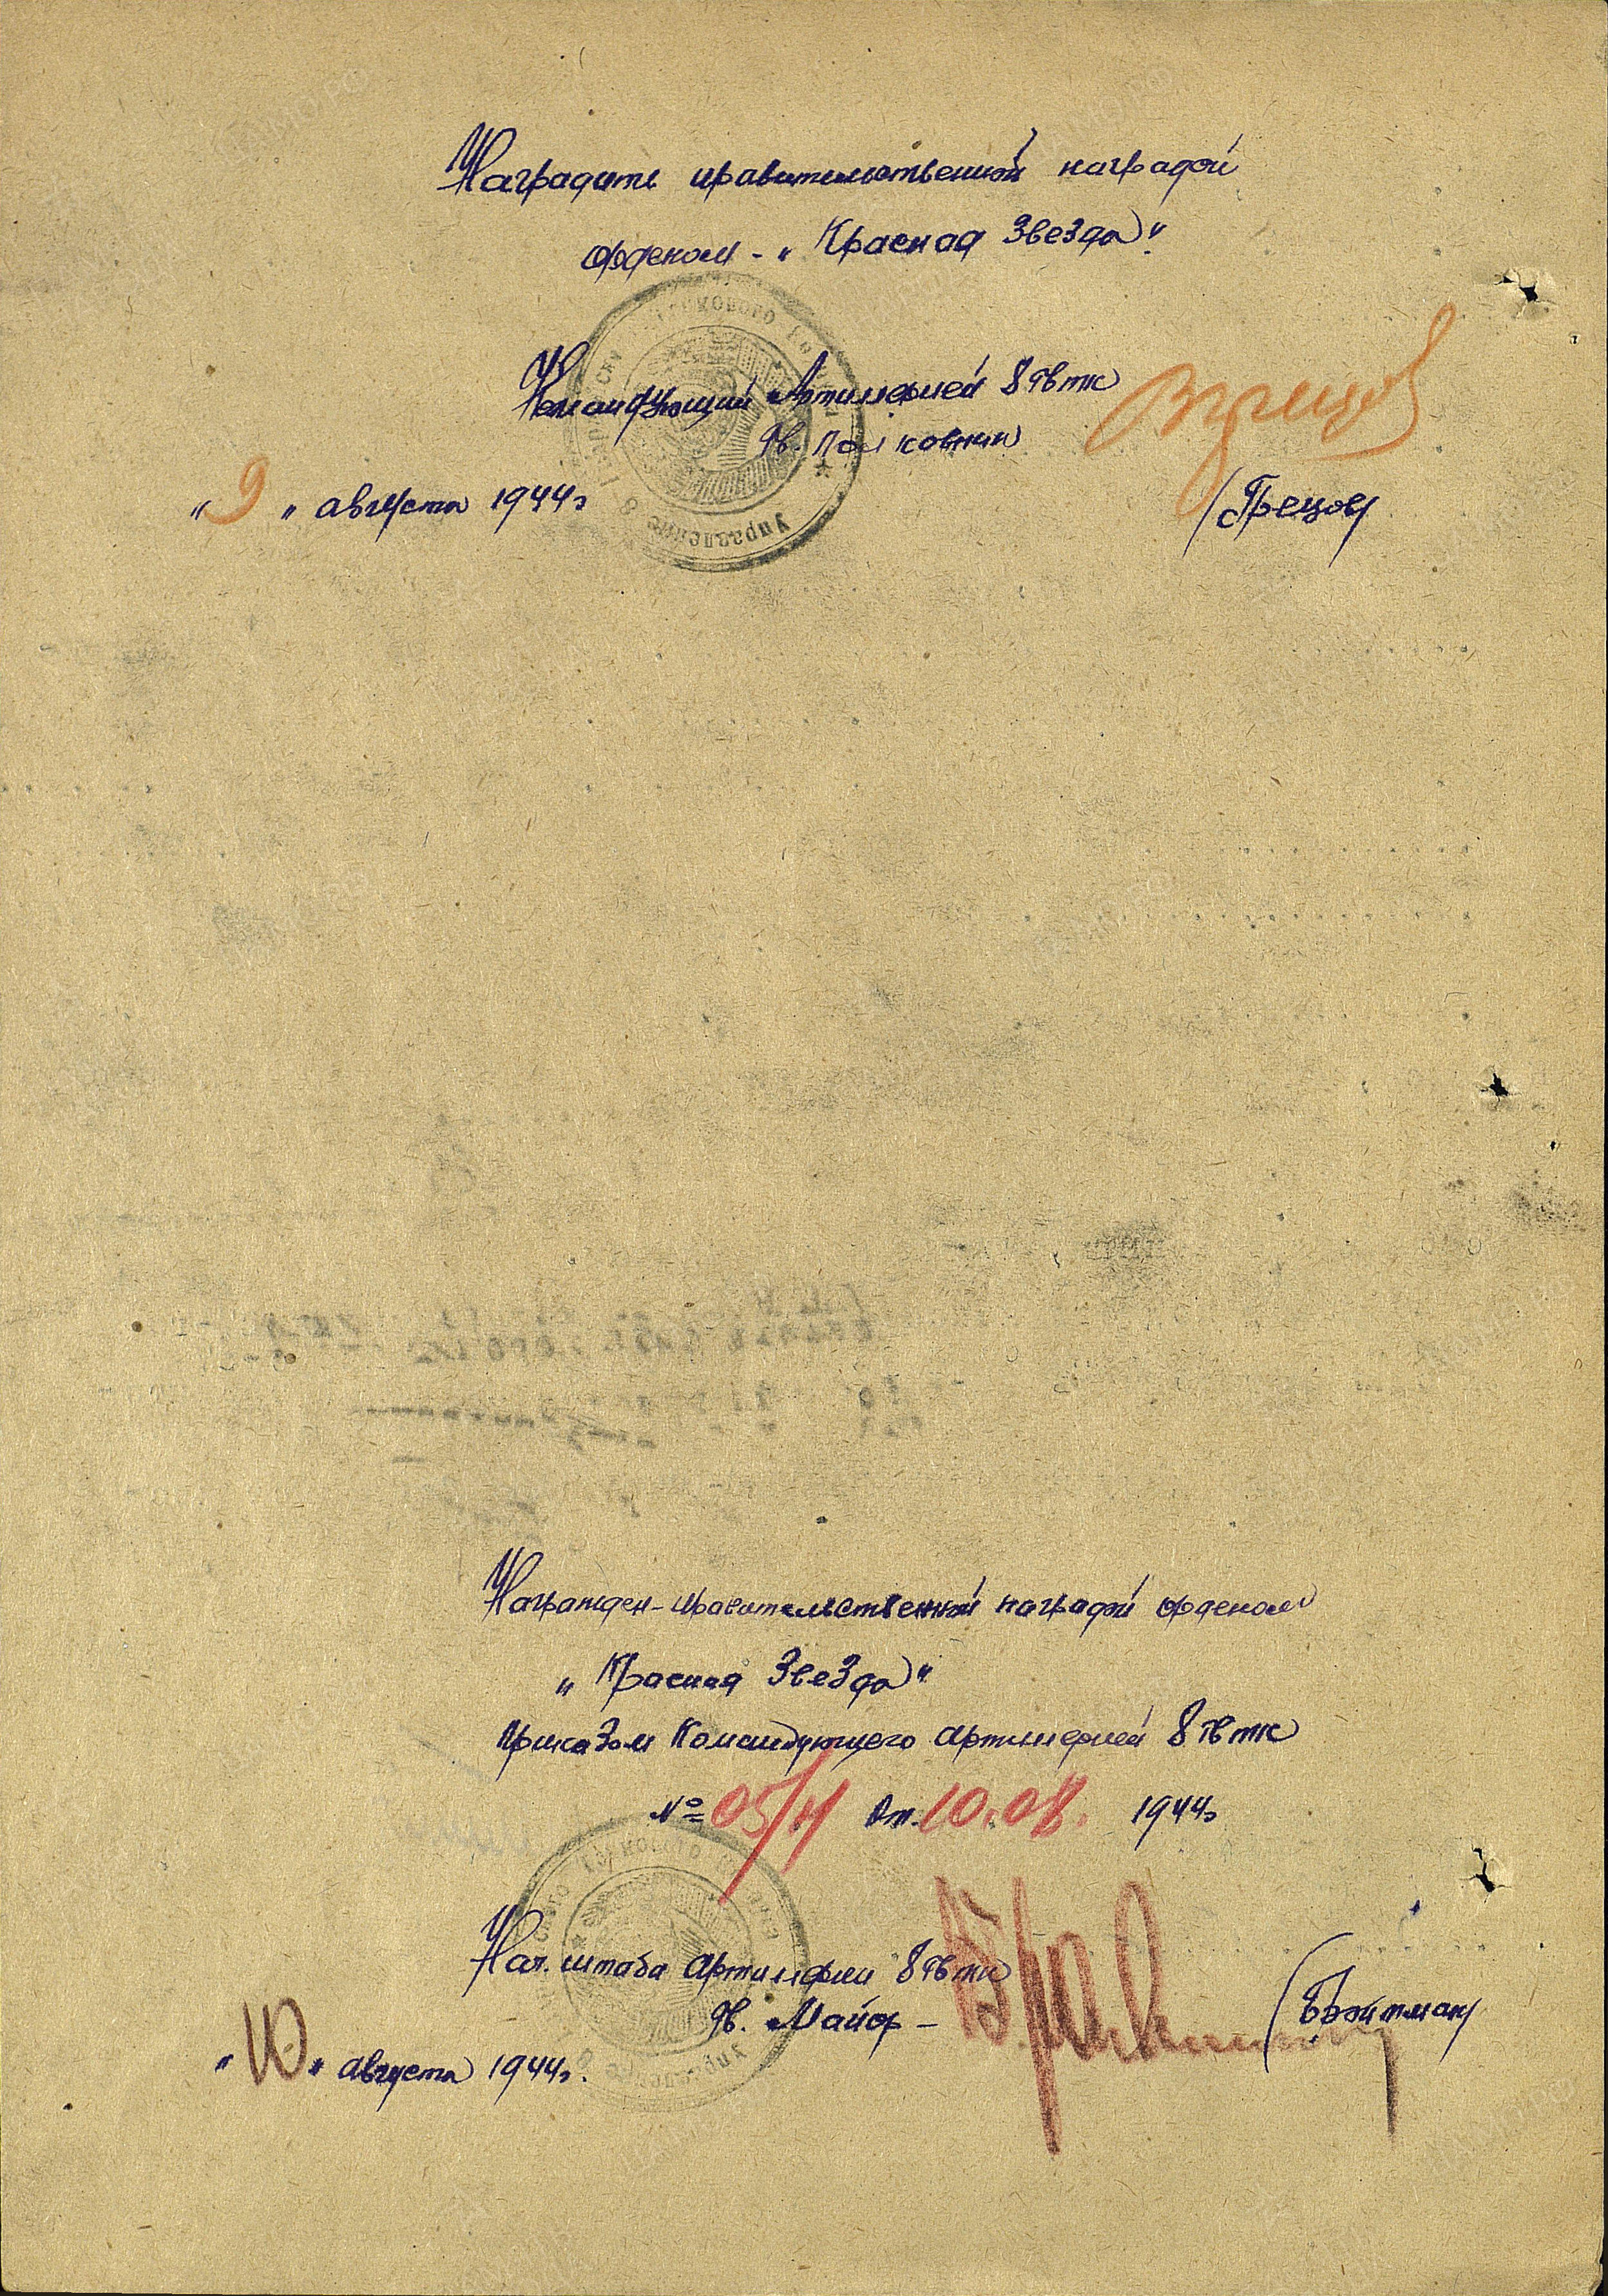 Наградить правительственной наградой
орденом - „Красная Звезда".
Командующий Артиллерией 8 Гв тк
Гв. Полковник
„9„ августа 1944г
/Грецов/
Управление 8
танкового
Награжден - правительственной наградой орденом
„Красная Звезда"
Приказом Командующего артиллерией 8 Гв тк
№ 05/н от. 10.08. 1944г
Нач. штаба артиллерии 8 Гв тк
Гв. Майор -
„10„ августа 1944г.